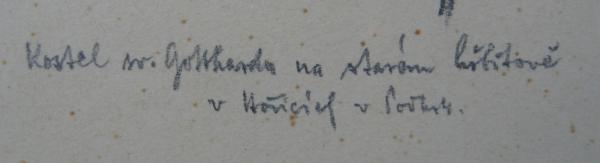 Kostel sv. Gottharda na starém hřbitově
v Hořicích v Podkrk.